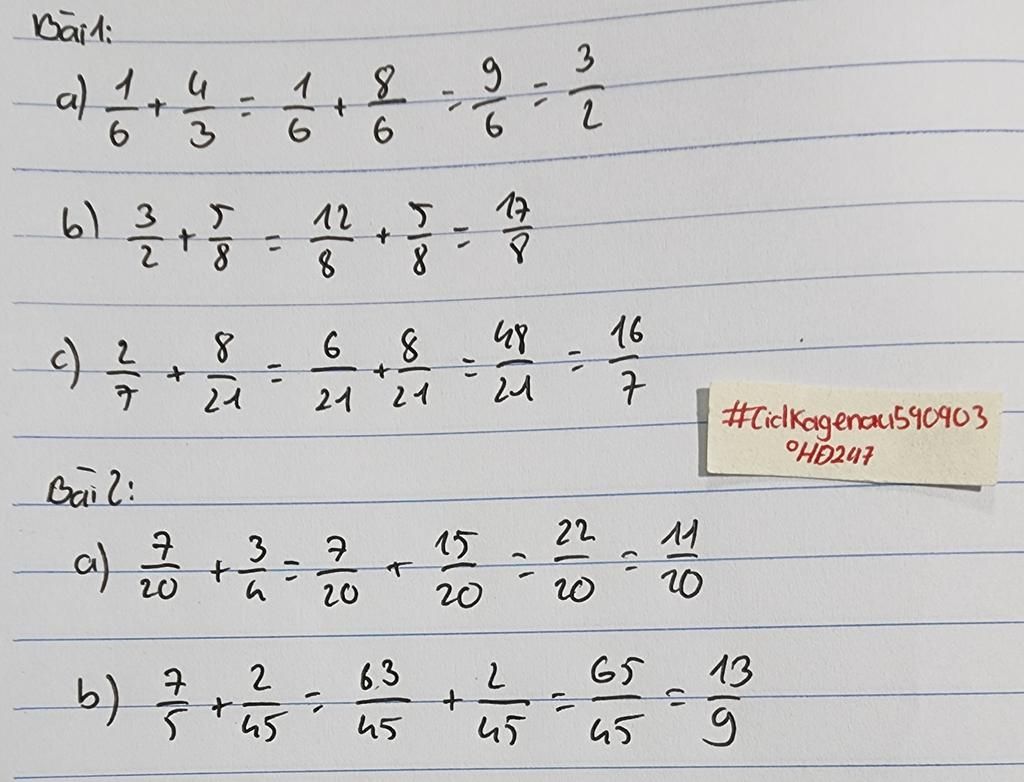 Bài 1:
a) 1/6 + 4/3 = 1/6 + 8/6 = 9/6 = 3/2
b) 3/2 + 5/8 = 12/8 + 5/8 = 17/8
c) 2/7 + 8/21 = 6/21 + 8/21 = 48/21 = 16/7
#CidKagenou590903
°HD247
Bài 2:
a) 7/20 + 3/4 = 7/20 + 15/20 = 22/20 = 11/20
b) 7/5 + 2/45 = 63/45 + 2/45 = 65/45 = 13/9